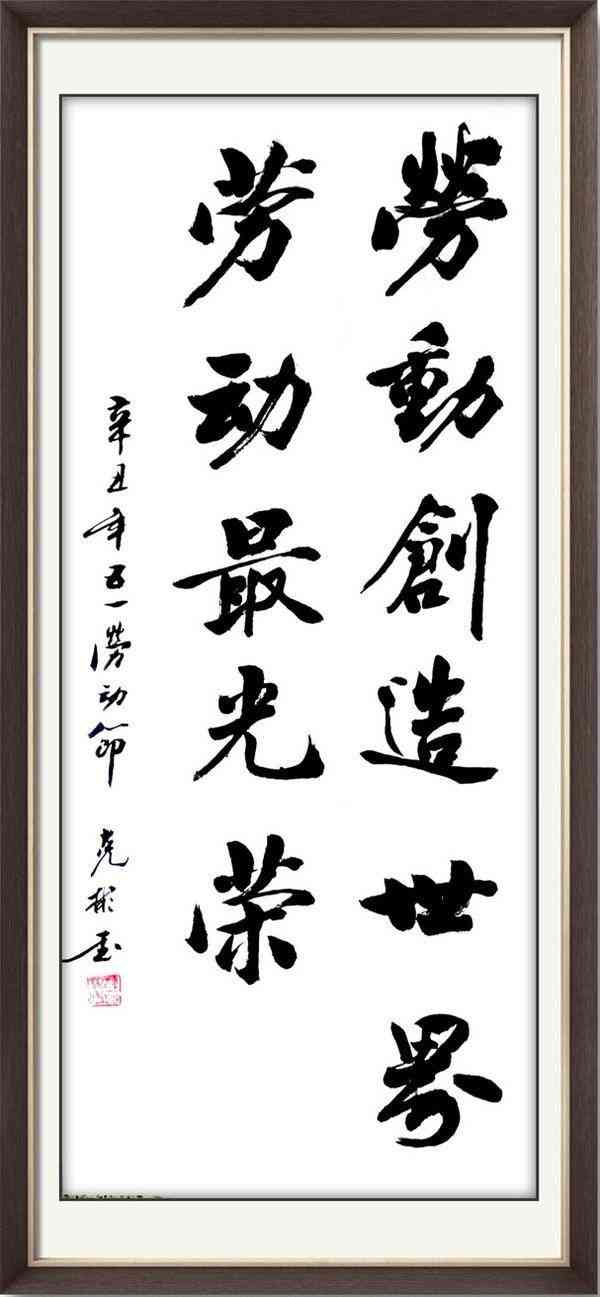 勞動創造世界
劳动最光荣
辛丑年五一勞动節